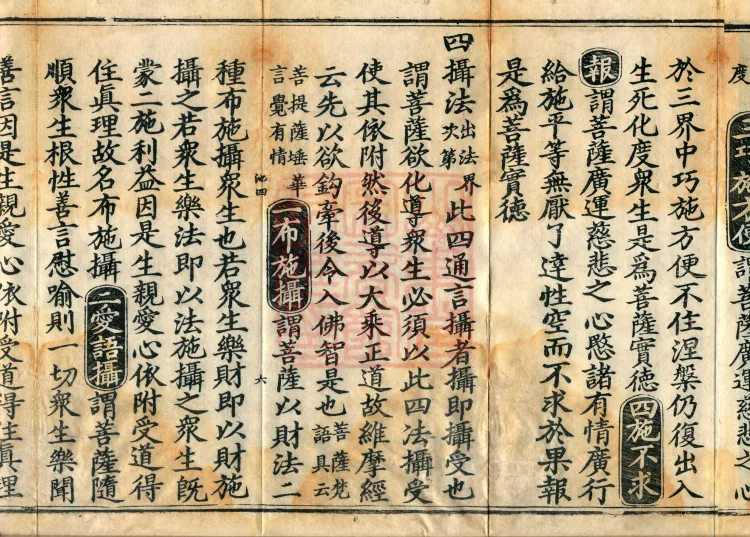 度
施方便謂菩薩廣運慈悲之心
於三界中巧施方便不住涅槃仍復出入
生死化度衆生是爲菩薩實德四施不求
報謂菩薩廣運慈悲之心愍諸有情廣行
給施平等無厭了達性空而不求於果報
是爲菩薩實德
四攝法出法界次第此四通言攝者攝即攝受也
謂菩薩欲化導衆生必須以此四法攝受
使其依附然後導以大乘正道故維摩經
云先以欲鈎牽後令入佛智是也菩薩梵語具云
菩提薩埵華言覺有情一布施攝謂菩薩以財法二
池四
六
種布施攝衆生也若衆生樂財即以財施
攝之若衆生樂法即以法施攝之衆生旣
蒙二施利益因是生親愛心依附受道得
住眞理故名布施攝二愛語攝謂菩薩隨
順衆生根性善言慰喻則一切衆生樂聞
善言因是生親愛心依附受道得住眞理